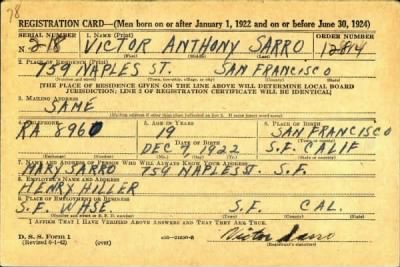 78
REGISTRATION CARD—(Men born on or after January 1, 1922 and on or before June 30, 1924)
SERIAL NUMBER 1. NAME (Print) ORDER NUMBER
N 218 VICTOR ANTHONY SARRO 12814
2. PLACE OF RESIDENCE (Print)
759 NAPLES ST. SAN FRANCISCO
(Number and street) (Town, township, village, or city) (County) (State)
[THE PLACE OF RESIDENCE GIVEN ON THE LINE ABOVE WILL DETERMINE LOCAL BOARD
JURISDICTION; LINE 2 OF REGISTRATION CERTIFICATE WILL BE IDENTICAL]
3. MAILING ADDRESS
SAME
4. TELEPHONE 5. AGE IN YEARS 6. PLACE OF BIRTH
RA 8960 19 SAN FRANCISCO
DATE OF BIRTH
DEC 7, 1922 S.F. CALIF
7. NAME AND ADDRESS OF PERSON WHO WILL ALWAYS KNOW YOUR ADDRESS
MARY SARRO 759 NAPLES ST. S.F.
8. EMPLOYER'S NAME AND ADDRESS
HENRY HILLER
9. PLACE OF EMPLOYMENT OR BUSINESS
S.F. WHSE. S.F. CAL.
I AFFIRM THAT I HAVE VERIFIED ABOVE ANSWERS AND THAT THEY ARE TRUE.
D. S. S. Form 1
(Revised 6-1-42) (over) Victor Sarro
(Registrant's signature)